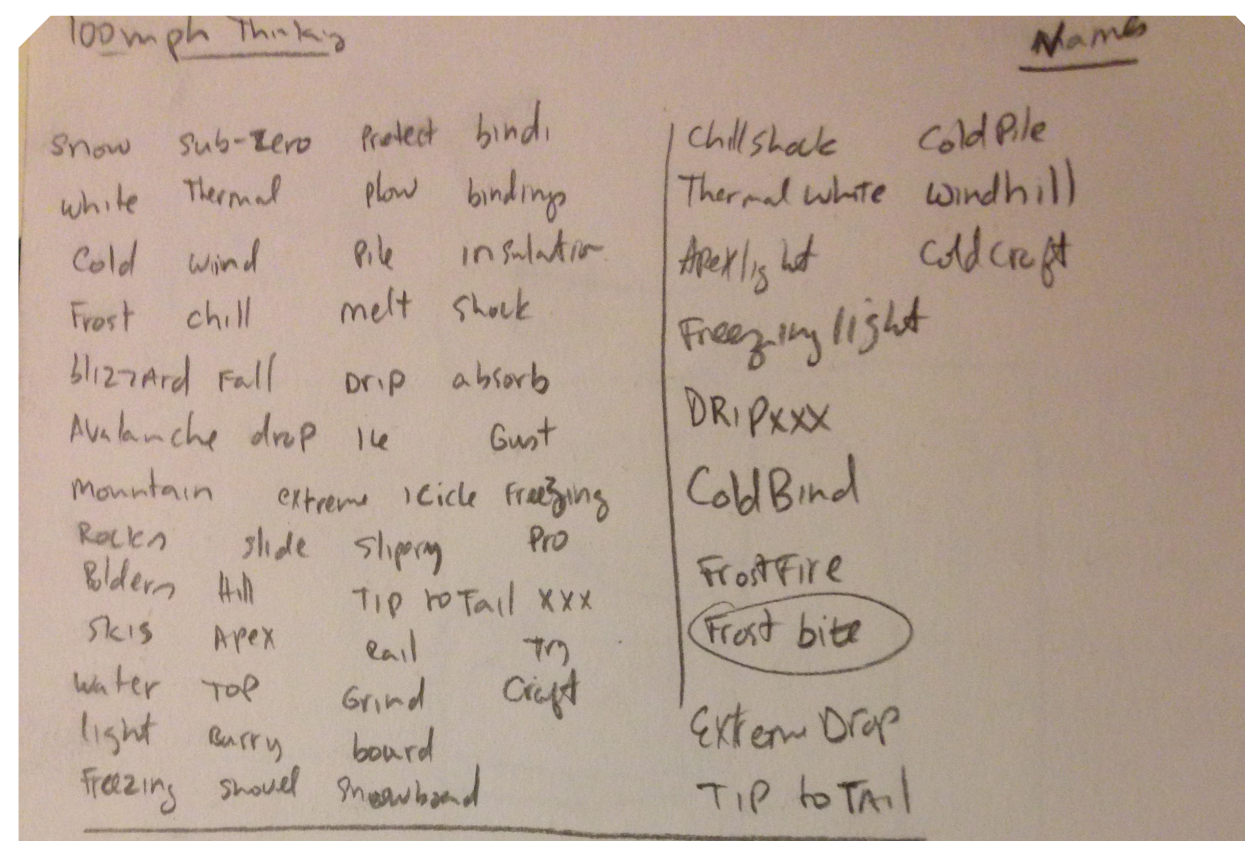 100mph Thinking
Names
Snow sub-zero Protect bindi
white Thermal plow bindings
Cold wind Pile insulation
Frost chill melt shock
blizzArd Fall Drip absorb
Avalanche drop Ice Gust
Mountain extreme icicle Freezing
Rocks slide slipery Pro
Bolders Hill Tip to Tail xxx
Skis Apex Rail Try
Water TOP Grind Craft
light Burry board
Freezing shovel Snowboard
Chillshock Cold Pile
Thermal white Windhill
Apexlight Coldcraft
Freezing light
DRIPxxx
ColdBind
FrostFire
Frost bite
Extreme Drop
TIP to TAil